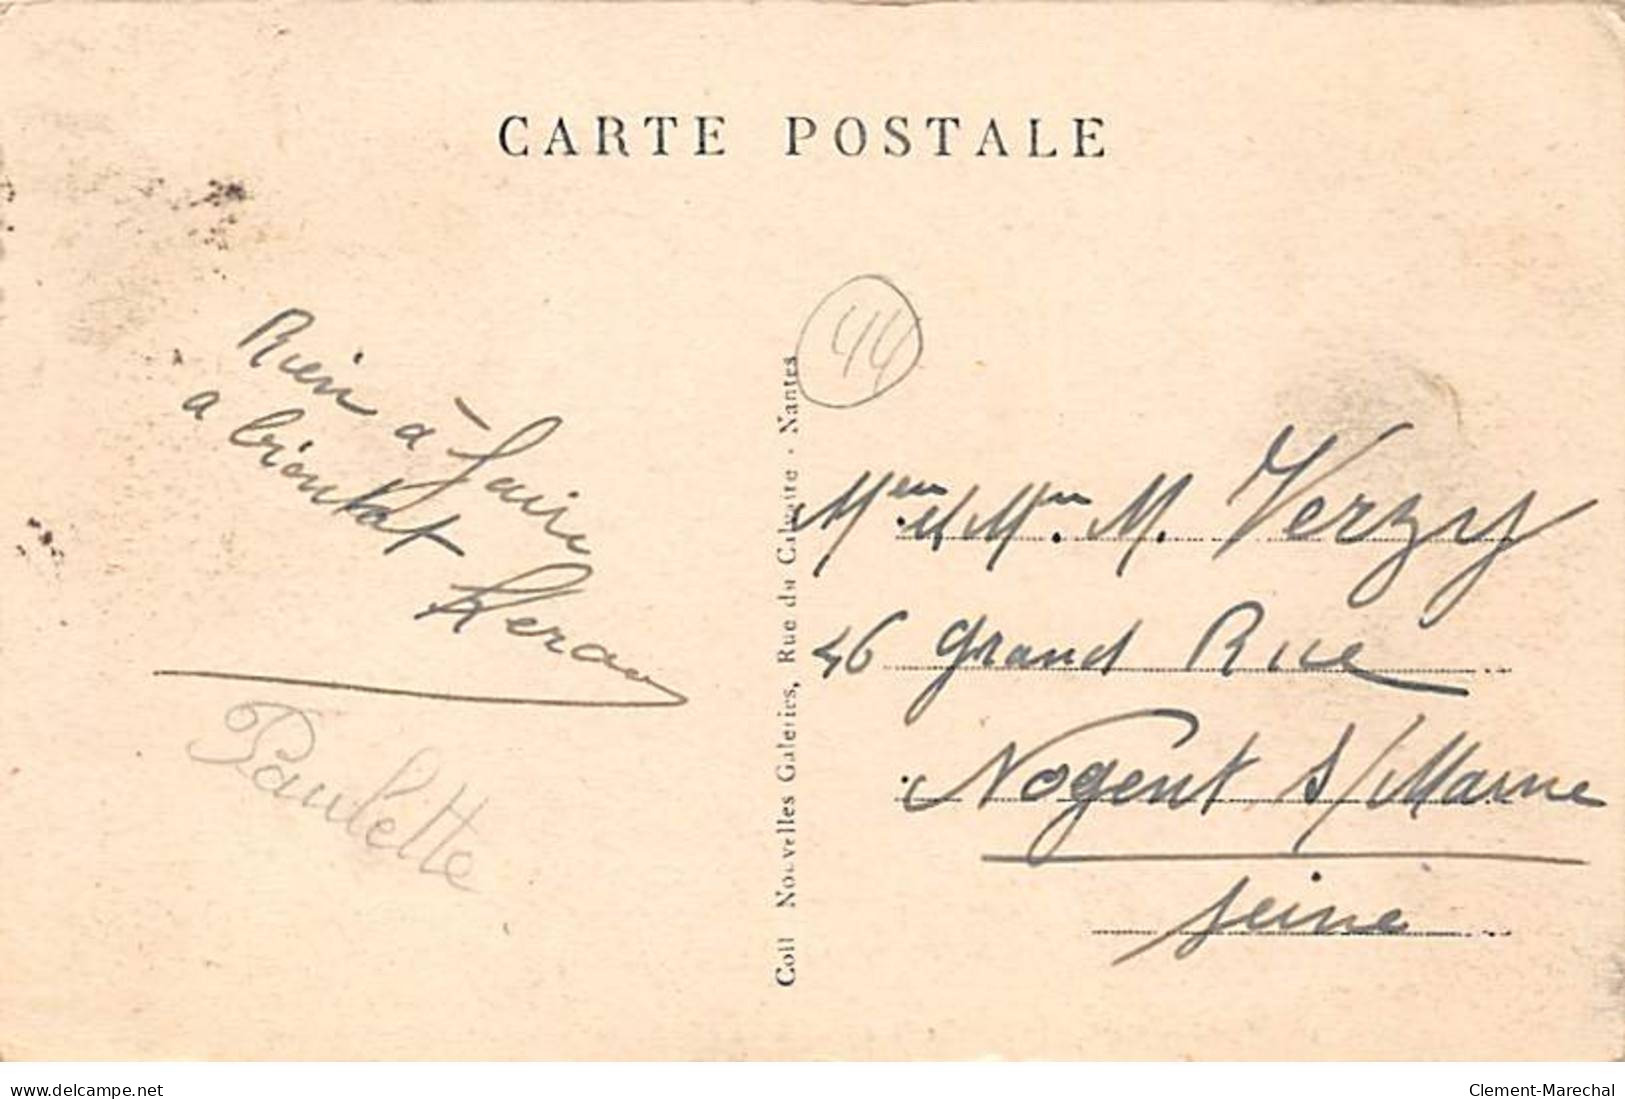 CARTE POSTALE
44
Rien à faire
a bientot
Paulette
Coll Nouvelles Galeries, Rue du Calvaire - Nantes
M. Verzy
46 grand Rue
Nogent s/Marne
seine
www.delcampe.net
Clement-Marechal